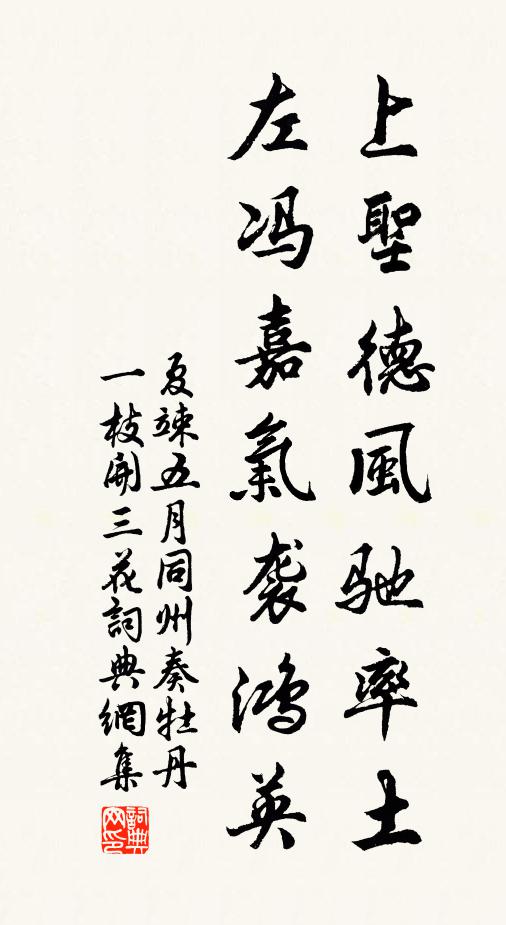 上聖德風馳率土
左冯嘉氣袭鸿英
夏竦五月同州奏牡丹
一枝開三花詞典網集
詞典
网印